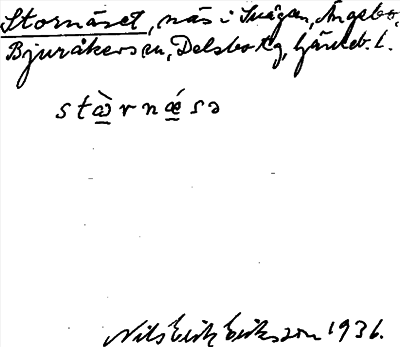 Stornäset, näs i Svågan, Ängebo,
Bjuråkers sn, Delsbo tg, Gävleb. l.
stὼ̲rnǽ̲sə
Nils Erik Eriksson 1936.